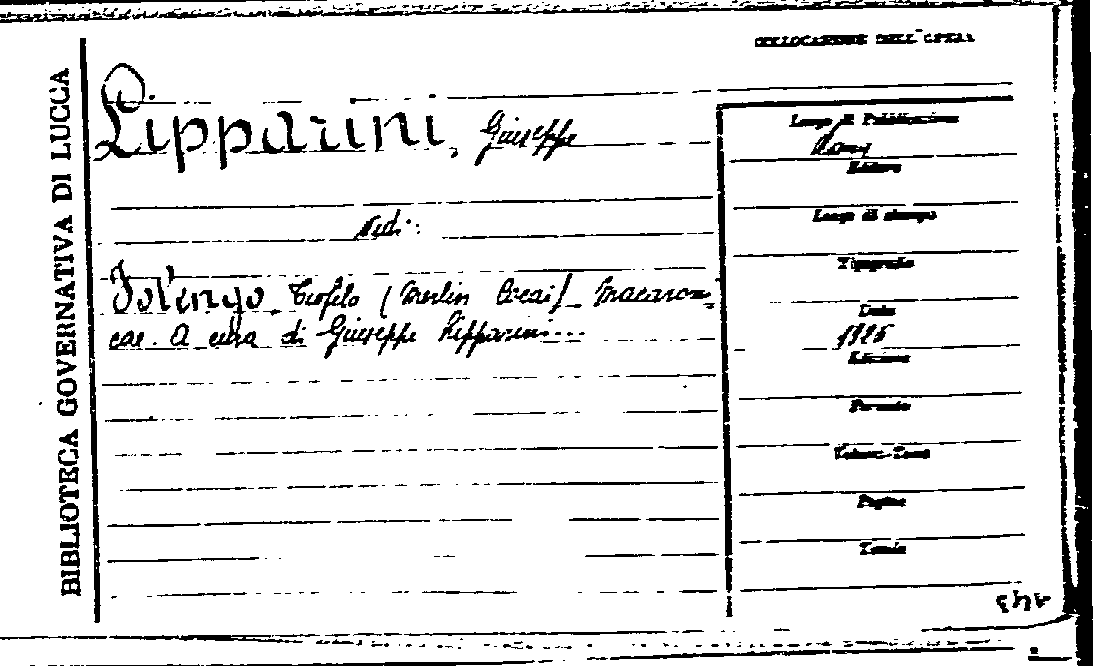 COLLOCAZIONE DELL'OPERA
BIBLIOTECA GOVERNATIVA DI LUCCA
Lipparini, Giuseppe
Vedi:
Folengo, Teofilo (Merlin Cocai) Macaron=
eae. A cura di Giuseppe Lipparini...
Luogo di Pubblicazione
Editore
Luogo di stampa
Tipografia
Data
Edizione
Formato
Volumi-Tomi
Pagine
Tavole